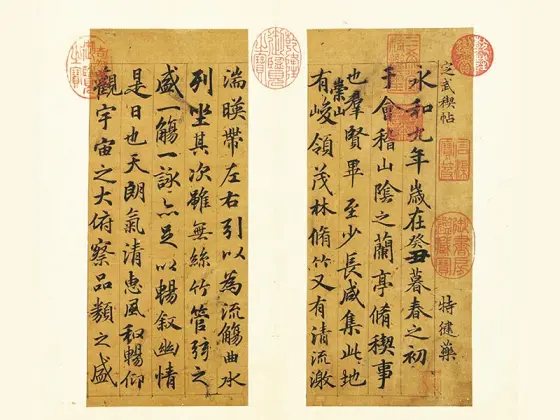 定武稧帖
特健藥
永和九年歲在癸丑暮春之初
于會稽山陰之蘭亭脩稧事
也羣賢畢至少長咸集此地
崇山
有峻領茂林脩竹又有清流激
湍暎帶左右引以為流觴曲水
列坐其次雖無絲竹管弦之
盛一觴一詠亦足以暢叙幽情
是日也天朗氣清惠風和暢仰
觀宇宙之大俯察品類之盛